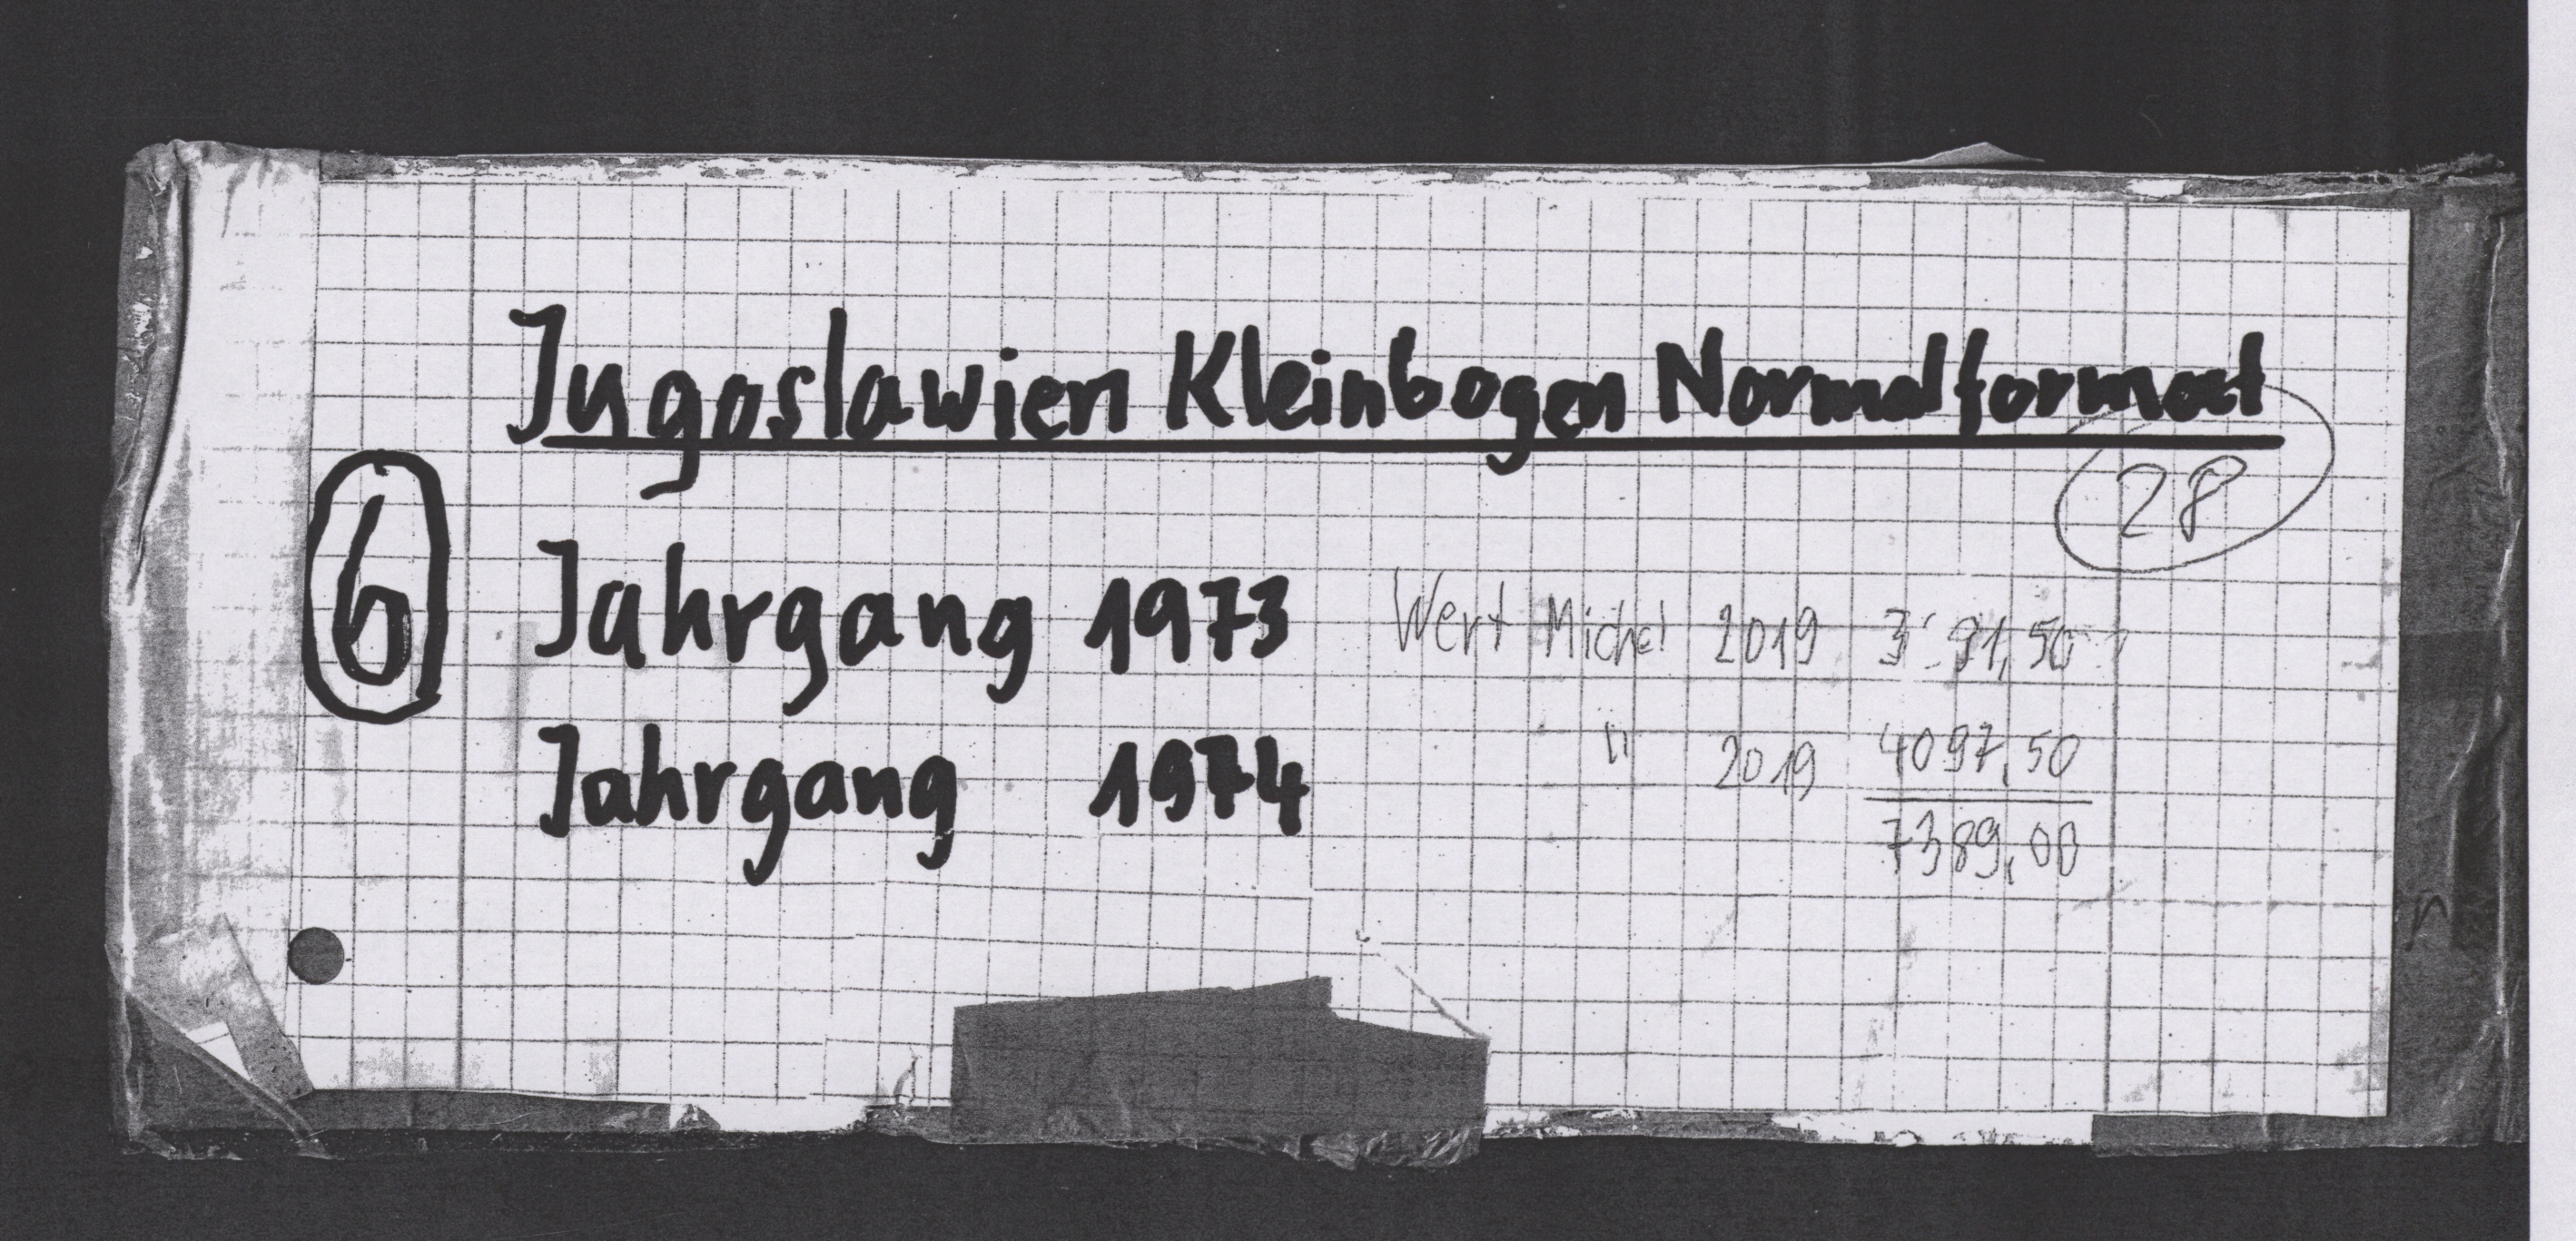 Jugoslawien Kleinbogen Normalformat
28
6
Jahrgang 1973 Wert Michel 2019
Jahrgang 1974 " 2019 4097,50
7389,00